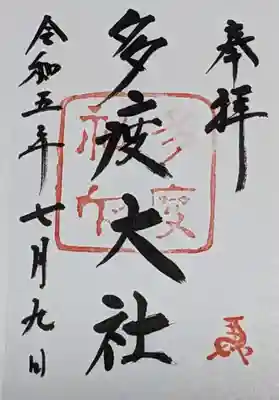 奉拝
多度大社
令和五年七月九日